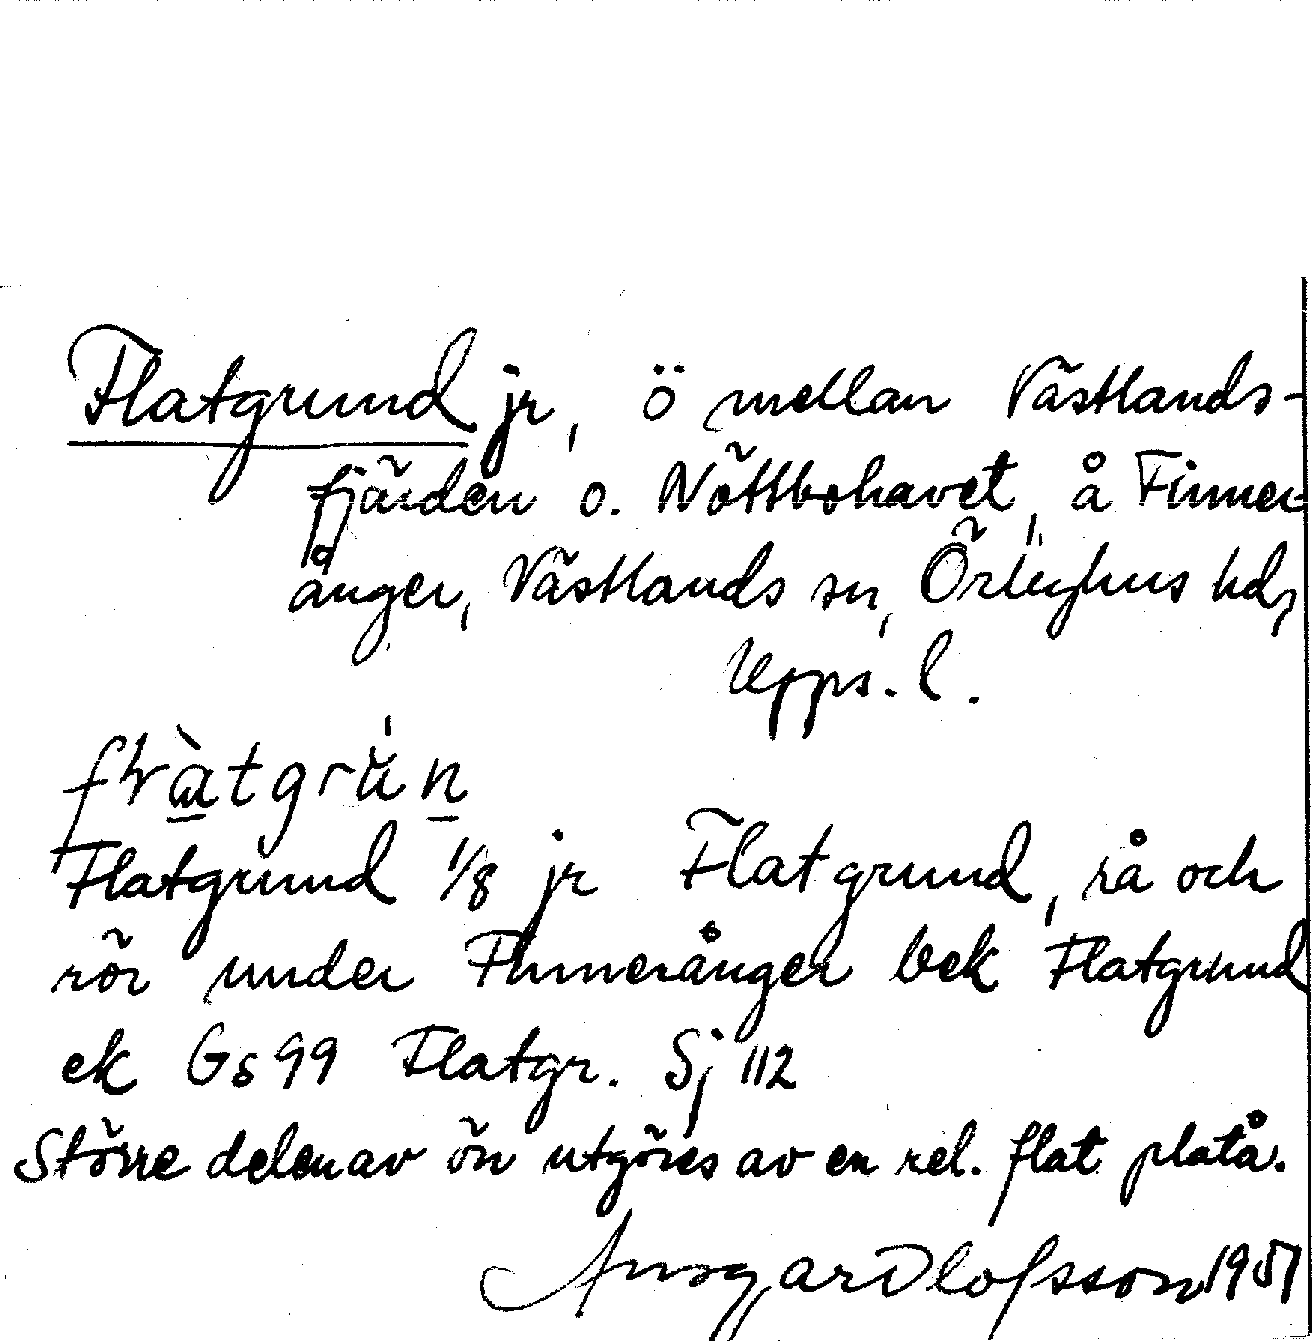 Flatgrund jr, ö mellan Västlands-
fjärden o. Nöttbohavet, å Finner-
ånger, Västlands sn, Örbyhus hd,
Upps. l.
Flatgrund 1/8 jr Flatgrund, rå och
rör under Finnerånger bek Flatgrund
ek Gs 99 Flatgr. Sj 112
Större delen av ön utgöres av en rel. flat platå.
Ansgar Olofsson 1951